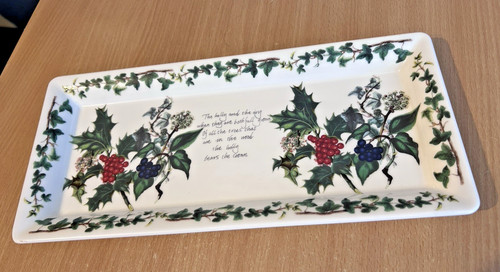 The holly and the ivy
when they are both full grown
of all the trees that
are in the wood
the holly
bears the crown